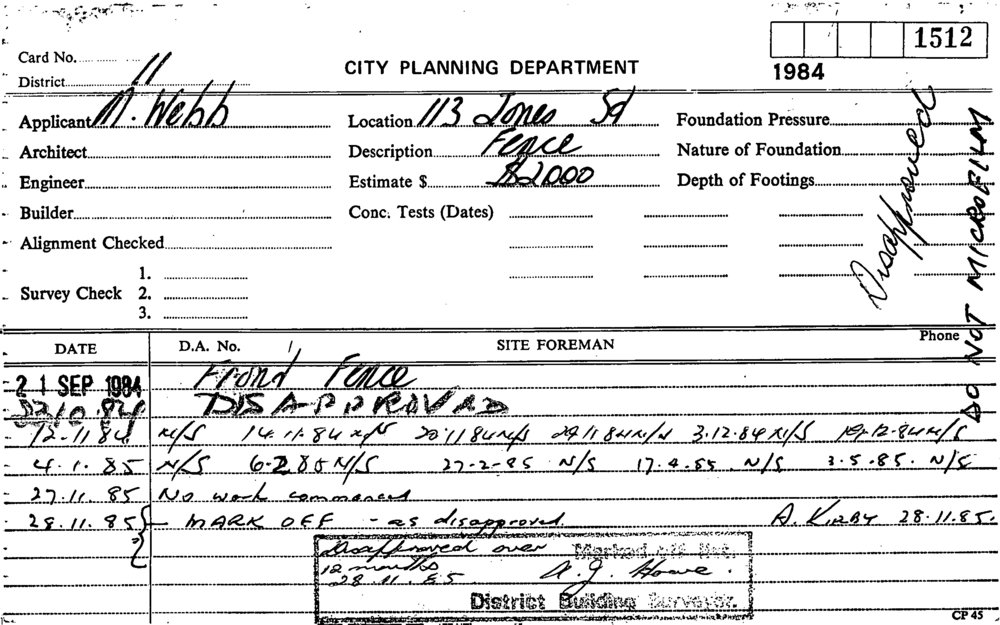 1512
1984
Card No.
District 11
CITY PLANNING DEPARTMENT
Applicant M. Webb
Location 113 Jones St
Foundation Pressure
Architect
Description Fence
Nature of Foundation
Engineer
Estimate $ $2000
Depth of Footings
Builder
Conc. Tests (Dates)
Alignment Checked
Survey Check
1.
2.
3.
Disapproved
DO NOT MICROFILM
DATE D.A. No. SITE FOREMAN Phone
21 SEP 1984 Front Fence
DISAPPROVED
12.11.84 N/S 14.11.84 N/S 20.11.84 N/S 29.11.84 N/S 3.12.84 N/S 19.12.84 N/S
4.1.85 N/S 6.2.85 N/S 27-2-85 N/S 17.4.85 N/S 3.5.85. N/S
27.11.85 No work commenced
28.11.85 - MARK OFF - as disapproved. A. KIRBY 28.11.85.
Disapproved over Marked off
12 months
28.11.85
District Building Surveyor.
CP 45